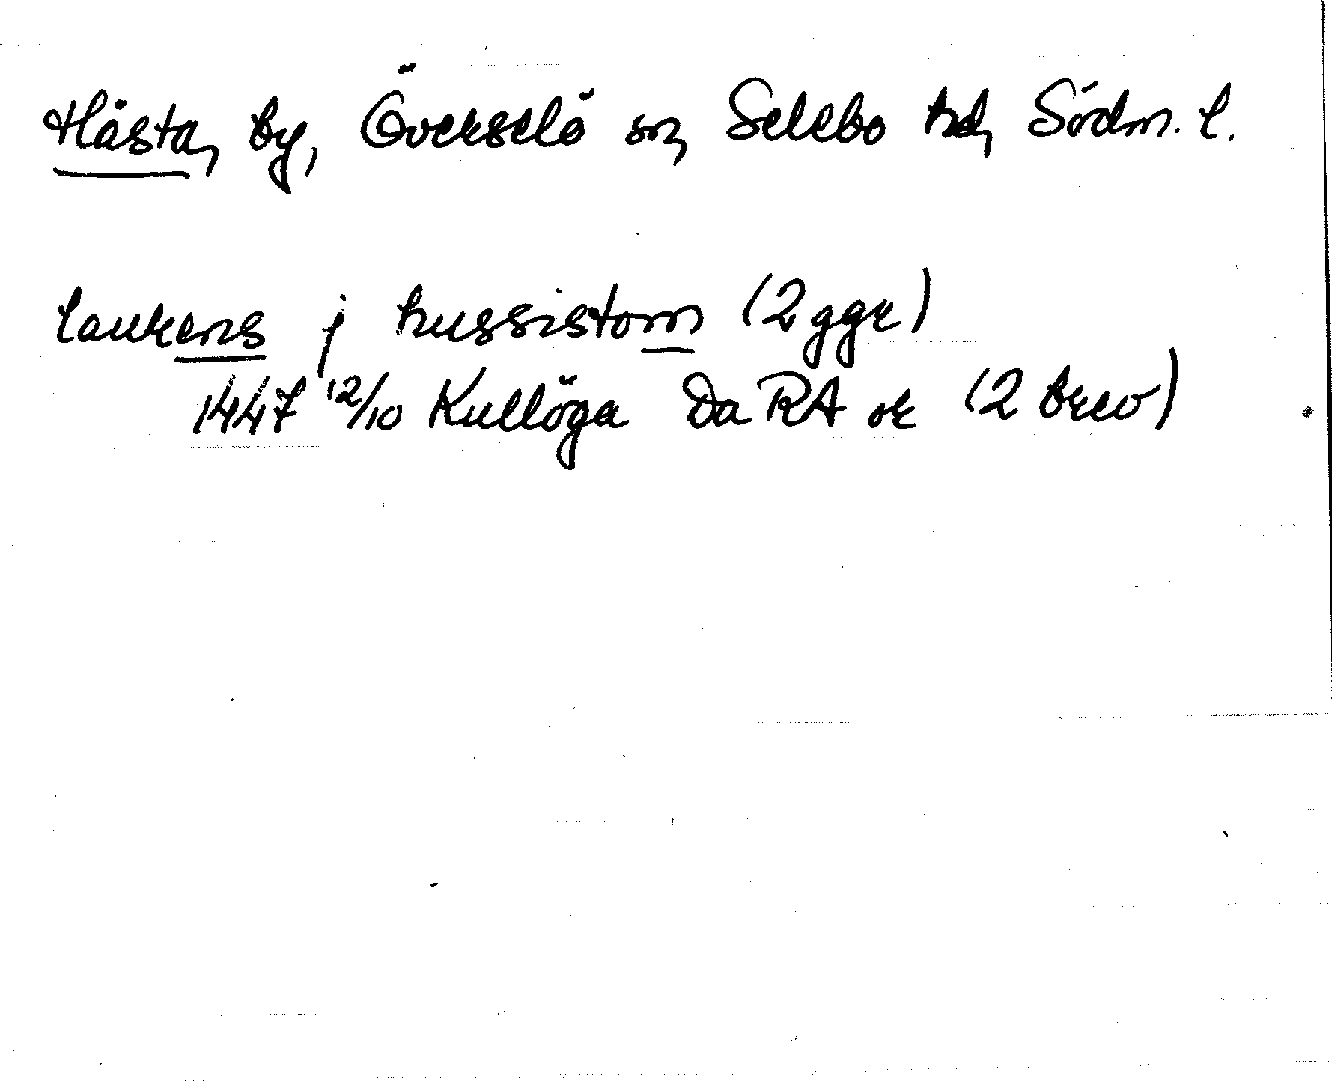 Hästa, by, Överselö sn, Selebo hd, Södm. l.
laurens j hussistom (2 ggr)
1447 12/10 Kullöga Da RA or (2 brev)